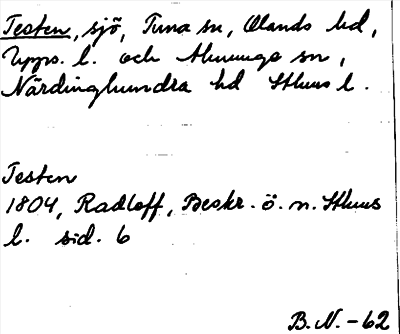 Testen, sjö, Tuna sn, Olands hd,
Upps. l. och Ununge sn,
Närdinghundra hd Sthms l.
Testen
1804, Radloff, Beskr. ö. n. Sthms
l. sid. 6
B.N. -62